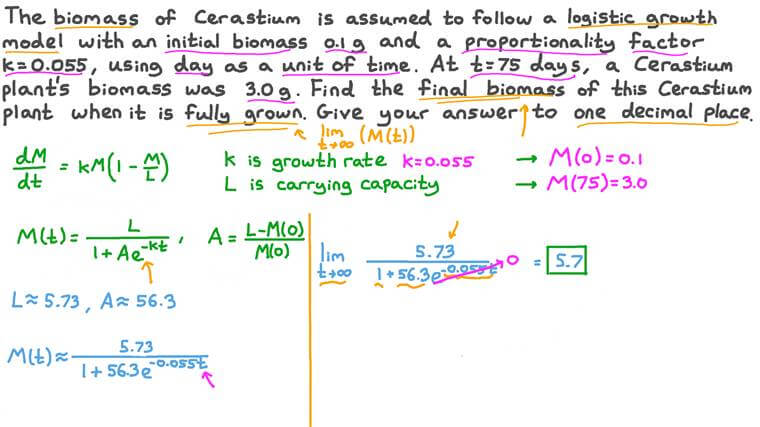 The biomass of Cerastium is assumed to follow a logistic growth
model with an initial biomass 0.1 g and a proportionality factor
k=0.055, using day as a unit of time. At t=75 days, a Cerastium
plant's biomass was 3.0 g. Find the final biomass of this Cerastium
plant when it is fully grown. Give your answer to one decimal place.
lim t→∞ (M(t))
dM/dt = kM(1 - M/L)
k is growth rate k=0.055 → M(0)=0.1
L is carrying capacity → M(75)=3.0
M(t) = L / (1 + Ae^-kt), A = (L-M(0)) / M(0)
L ≈ 5.73, A ≈ 56.3
M(t) ≈ 5.73 / (1 + 56.3e^-0.055t)
lim t→∞ 5.73 / (1 + 56.3e^-0.055t) 0 = 5.7